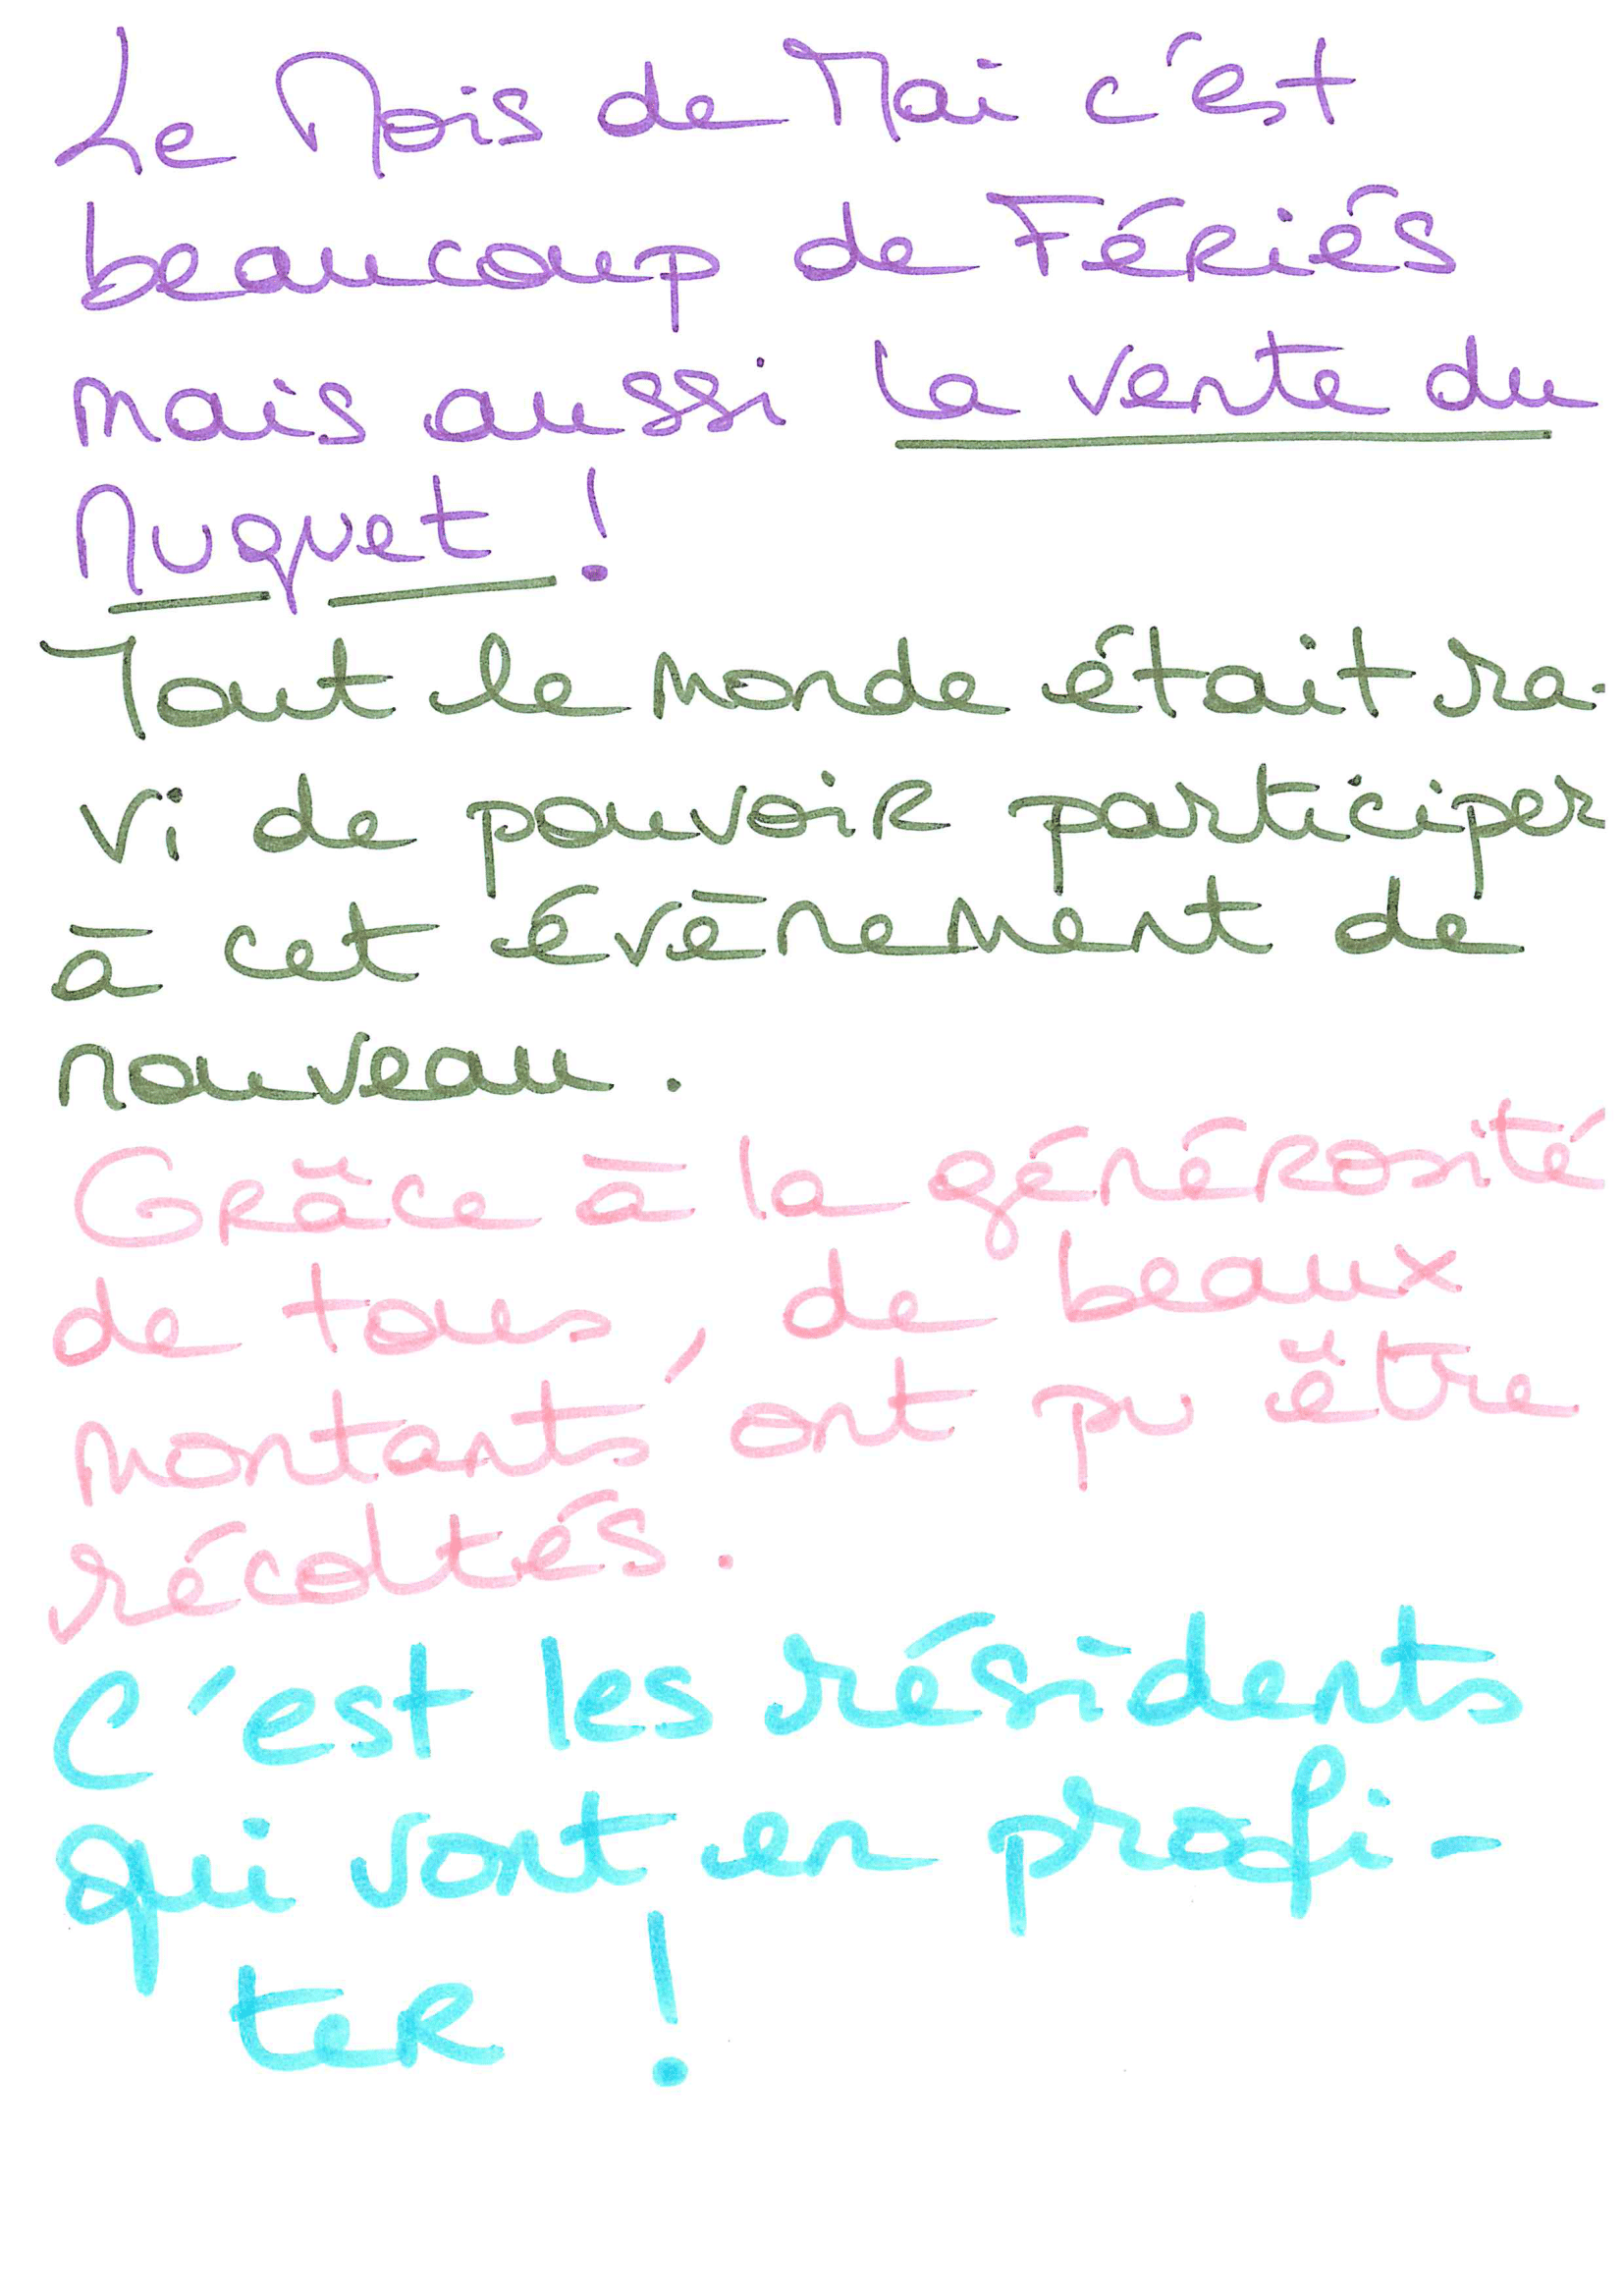 Le Mois de Mai c'est
beaucoup de Fériés
mais aussi la vente du
Muguet !
Tout le monde était ra-
vi de pouvoir participer
à cet évènement de
nouveau.
Grâce à la générosité
de tous, de beaux
montants ont pu être
récoltés.
C'est les résidents
qui vont en profi-
ter !